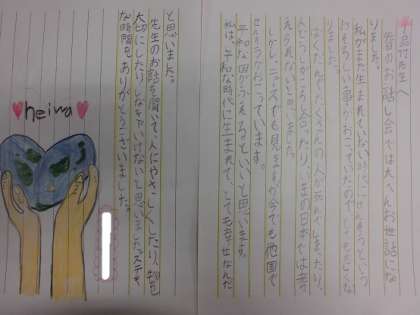 先生へ
昔のお話し会では大へんお世話にな
りました。
私がまだ生まれていない時に、せんそうという
おそろしい事がおこっていたのでとてもおどろ
ばくだんでたくさんの人がなくなってしまったり、
人どうしがころし合ったり、いまの日本では考
えられないなと思いました。
しかし、ニュースでも見ますが今でも他国で
せんそうがおこっています。
平和な国がふえるといいと思います。
私は、平和な時代に生まれて、とても幸せなんだ
と思いました。
先生のお話を聞いて、人にやさしくしたり、物を
大切にしたりしなきゃいけないと思いました。ステキ
な時間を、ありがとうございました。
heiwa